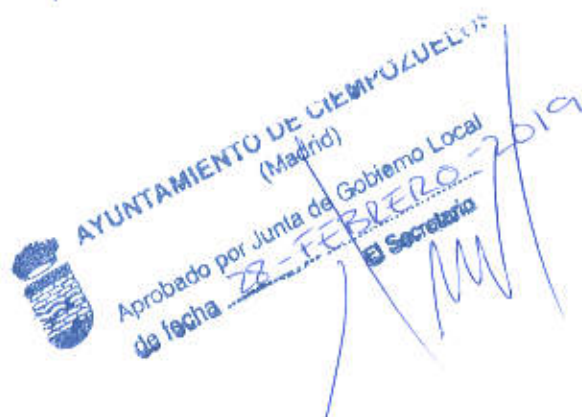 AYUNTAMIENTO DE CIEMPOZUELOS
(Madrid)
Aprobado por Junta de Gobierno Local
de fecha 28-FEBRERO-2019
El Secretario